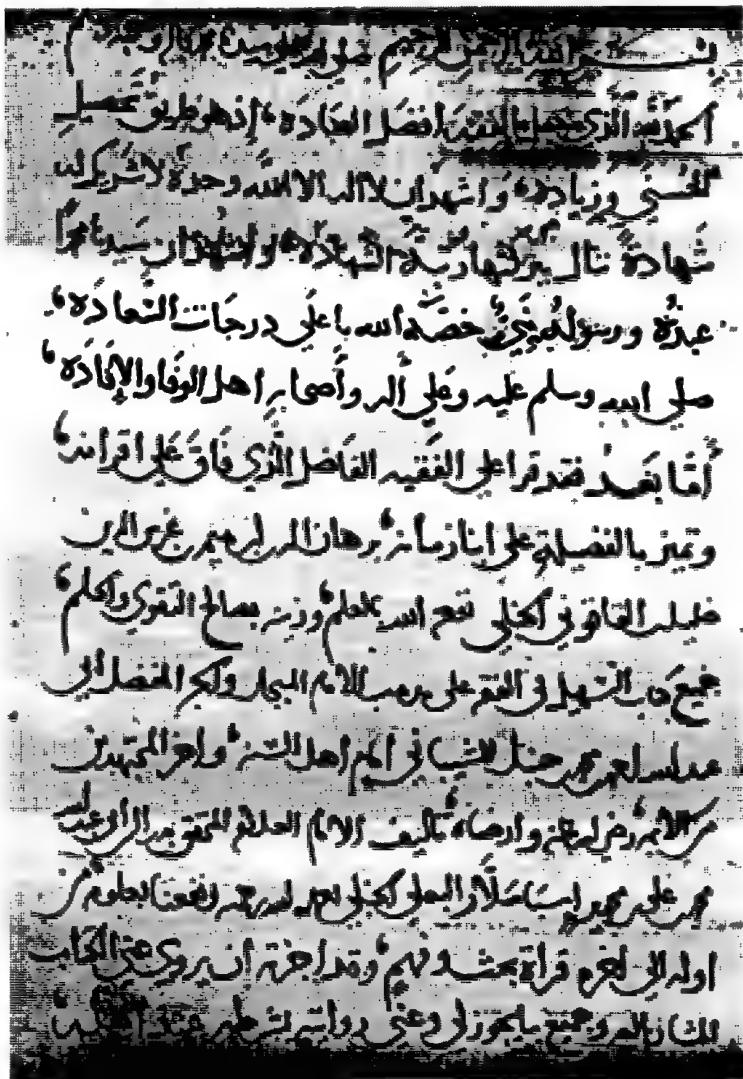 بسم الله الرحمن الرحيم صلى الله على سيدنا محمد وآله وصحبه وسلم
الحمد لله الذي جعل الفقه أفضل العبادة، إذ هو طريق تحصيل
الحسنى وزيادة، وأشهد ان لا اله الا الله وحده لا شريك له
شهادة تنال بها رتبة الشهادة، وأشهد ان سيدنا محمدا
عبده ورسوله نبي خصه الله باعلى درجات السعادة،
صلى الله وسلم عليه وعلى آله وأصحابه اهل الوفا والإفادة،
أمّا بعد فقد قرا على الفقيه الفاضل الذي فاق على اقرانه،
وتميز بالفضيلة على ابنا زمانه، برهان الدين ابراهيم بن غرس الدين
خليل القاقوني الحنبلي نفعه الله بالعلم، وزينه بصالح التقوى والحلم،
جميع كتاب التسهيل في الفقه على مذهب الامام المبجل والحبر المفضل أبي
عبد الله احمد بن محمد بن حنبل الشيباني امام أهل السنة، وأحد المجتهدين
من الائمه، رضي الله عنه وارضاه، تأليف الامام العلامة المحقق بدر الدين أبي عبد الله
محمد بن علي بن محمد ابن اسباسلار البعلي الحنبلي تغمده الله برحمته ونفعنا بعلومه من
اوله الى اخره قراة بحث وفهم، وقد اجزته ان يروي عني الكتاب
المشار اليه وجميع ما يجوز لي وعني روايته بشرطه عند اهله،